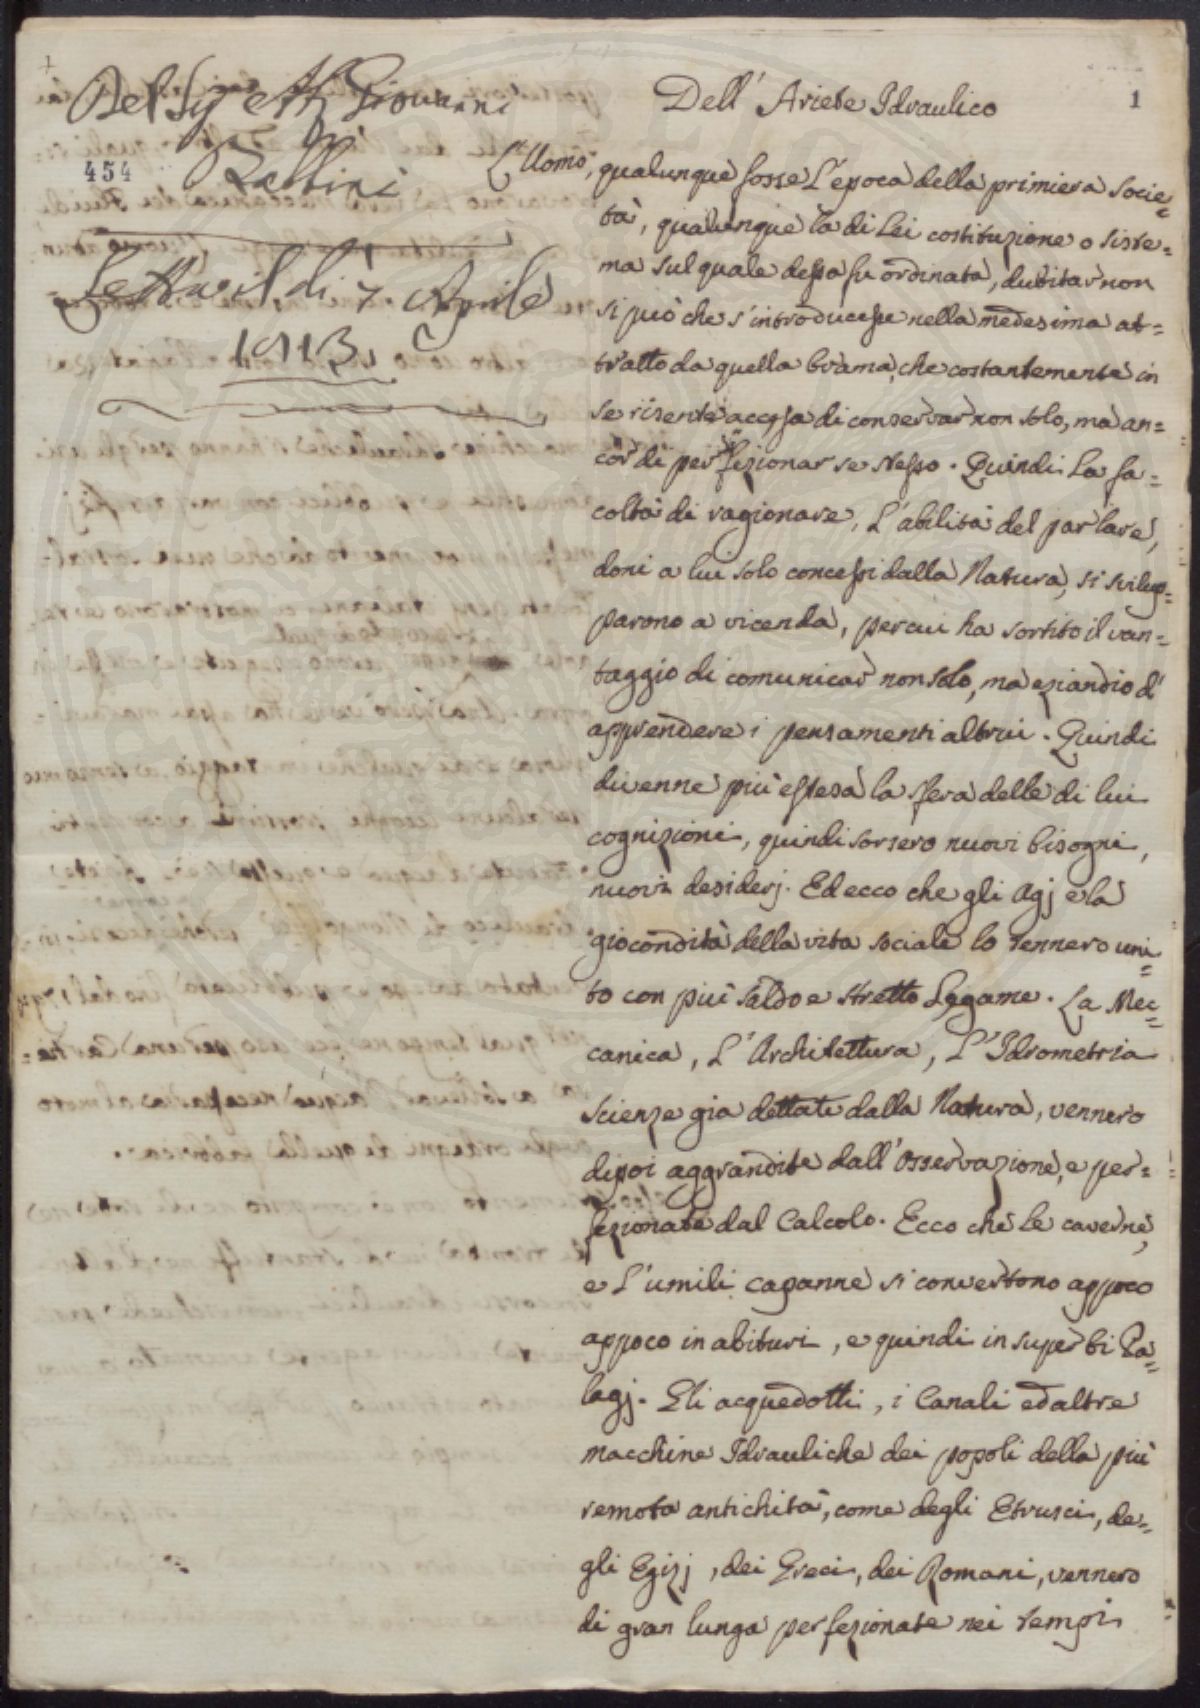 Del Sig.e Giovanni
Rabbini
454
Letta il dì 7 Aprile
1813.
1
Dell' Ariete Idraulico
L'Uomo, qualunque fosse L'epoca della primiera Socie=
tà, qualunque la di Lei costituzione o siste=
ma sul quale dessa fu ordinata, dubitar non
si può che s'introducesse nella medesima at=
tratto da quella brama, che costantemente in
se risente accesa di conservar non solo, ma an=
cor di perfezionar se stesso. Quindi La fa=
coltà di ragionare, L'abilità del parlare,
doni a lui solo concessi dalla Natura, si svilup=
parono a vicenda, per cui ha sortito il van=
taggio di comunicar non solo, ma eziandio d'
apprendere i pensamenti altrui. Quindi
divenne più estesa la sfera delle di lui
cognizioni, quindi sorsero nuovi bisogni,
nuovi desiderj. Ed ecco che gli Agj e la
giocondità della vita sociale lo tennero uni=
to con più saldo e stretto Legame. La Mec=
canica, L'Architettura, L'Idrometria
Scienze gia dettate dalla Natura, vennero
dipoi aggrandite dall'Osservazione, e per=
fezionate dal Calcolo. Ecco che Le caverne,
e L'umili capanne si convertono appoco
appoco in abituri, e quindi in superbi Pa=
lagj. Gli acquedotti, i Canali ed altre
macchine Idrauliche dei popoli della più
remota antichità, come degli Etrusci, de=
gli Egizj, dei Greci, dei Romani, vennero
di gran lunga perfezionate nei tempi